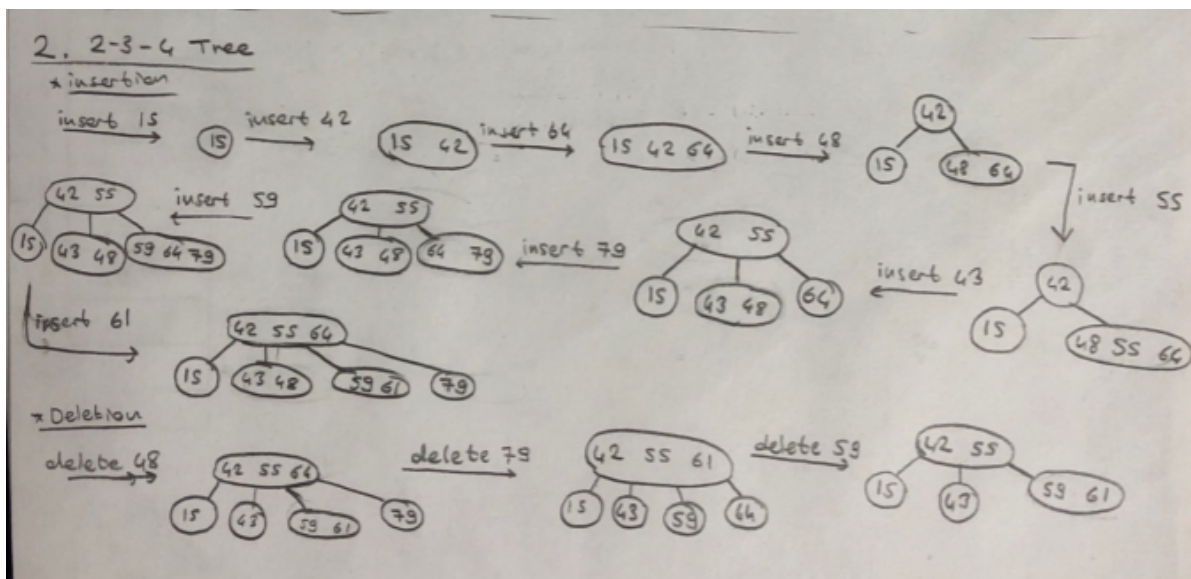 2. 2-3-4 Tree
* insertion
insert 15
15
insert 42
15 42
insert 64
15 42 64
insert 48
42
15
48 64
insert 55
42
15
48 55 64
insert 43
42 55
15
43 48
64
insert 79
42 55
15
43 48
64 79
insert 59
42 55
15
43 48
59 64 79
insert 61
42 55 64
15
43 48
59 61
79
* Deletion
delete 48
42 55 64
15
43
59 61
79
delete 79
42 55 61
15
43
59
64
delete 59
42 55
15
43
59 61